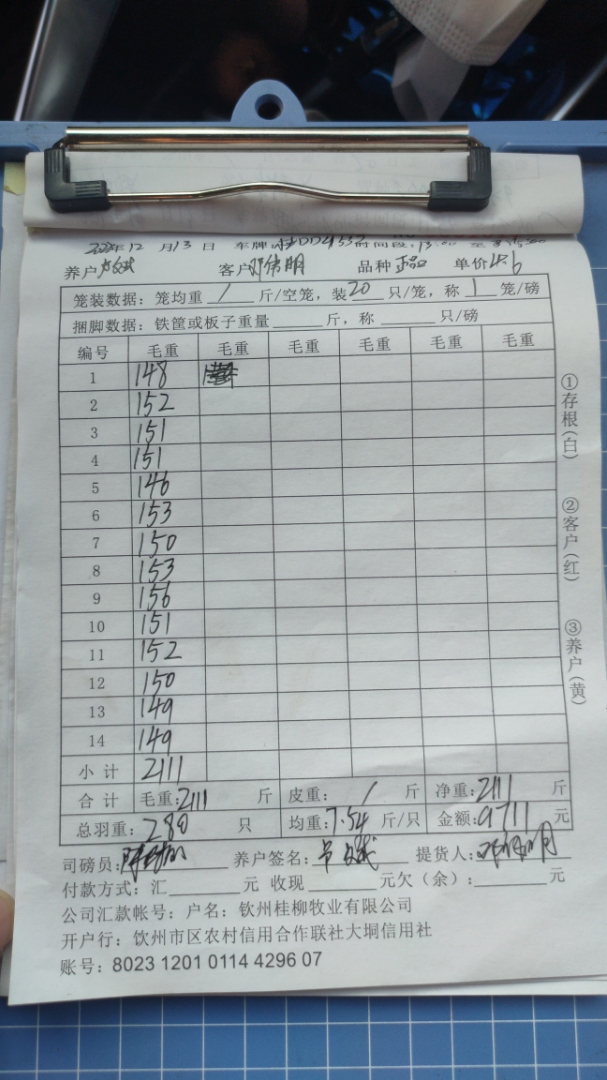 年12月13日 车牌 时间段:13:00
养户 客户邓伟明 品种正品 单价4.6
笼装数据: 笼均重 / 斤/空笼, 装20只/笼, 称1笼/磅
捆脚数据: 铁筐或板子重量 斤, 称 只/磅
编号 毛重 毛重 毛重 毛重 毛重 毛重
1 148
2 152
3 151
4 151
5 146
6 153
7 150
8 153
9 156
10 151
11 152
12 150
13 149
14 149
小计 2111
合计 毛重:2111斤 皮重: / 斤 净重:2111斤
总羽重:280只 均重:7.54斤/只 金额:9711元
司磅员: 养户签名: 提货人:邓伟明
付款方式: 汇 元 收现 元欠(余): 元
公司汇款帐号: 户名: 钦州桂柳牧业有限公司
开户行: 钦州市区农村信用合作联社大垌信用社
账号: 8023 1201 0114 4296 07
①存根(白)
②客户(红)
③养户(黄)